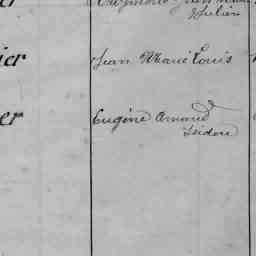 Julien
ier Jean Marie Louis
er Eugène Armand
Isidore